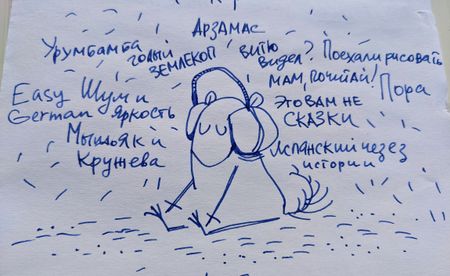 АРЗАМАС
Урумбамба
ГОЛЫЙ
ЗЕМЛЕКОП
ВИТЮ
ВИДЕЛ?
Поехали рисовать
МАМ, ПОЧИТАЙ!
Пора
Easy
German
Шум и
Яркость
ЭТО ВАМ НЕ
СКАЗКИ
Мышьяк и
Кружева
Испанский через
истории